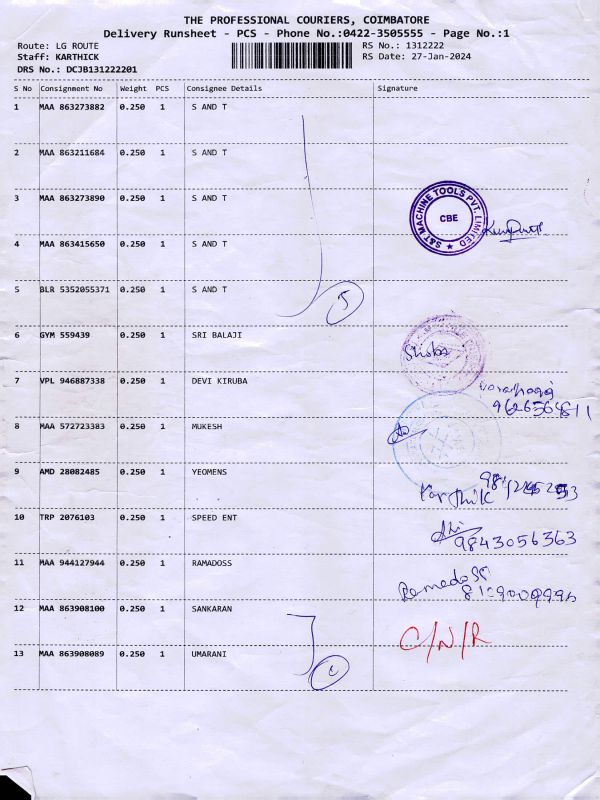 THE PROFESSIONAL COURIERS, COIMBATORE
Delivery Runsheet - PCS - Phone No.:0422-3505555 - Page No.:1
Route: LG ROUTE RS No.: 1312222
Staff: KARTHICK RS Date: 27-Jan-2024
DRS No.: DCJB131222201
S No Consignment No Weight PCS Consignee Details Signature
1 MAA 863273882 0.250 1 S AND T
2 MAA 863211684 0.250 1 S AND T
3 MAA 863273890 0.250 1 S AND T
S&T MACHINE TOOLS PVT. LIMITED
CBE
4 MAA 863415650 0.250 1 S AND T
5 BLR 5352055371 0.250 1 S AND T
5
6 GYM 559439 0.250 1 SRI BALAJI
7 VPL 946887338 0.250 1 DEVI KIRUBA
8 MAA 572723383 0.250 1 MUKESH
9 AMD 28082485 0.250 1 YEOMENS
Karthik
10 TRP 2076103 0.250 1 SPEED ENT
9843056363
11 MAA 944127944 0.250 1 RAMADOSS
Ramadoss
12 MAA 863908100 0.250 1 SANKARAN
C/N/R
13 MAA 863908089 0.250 1 UMARANI